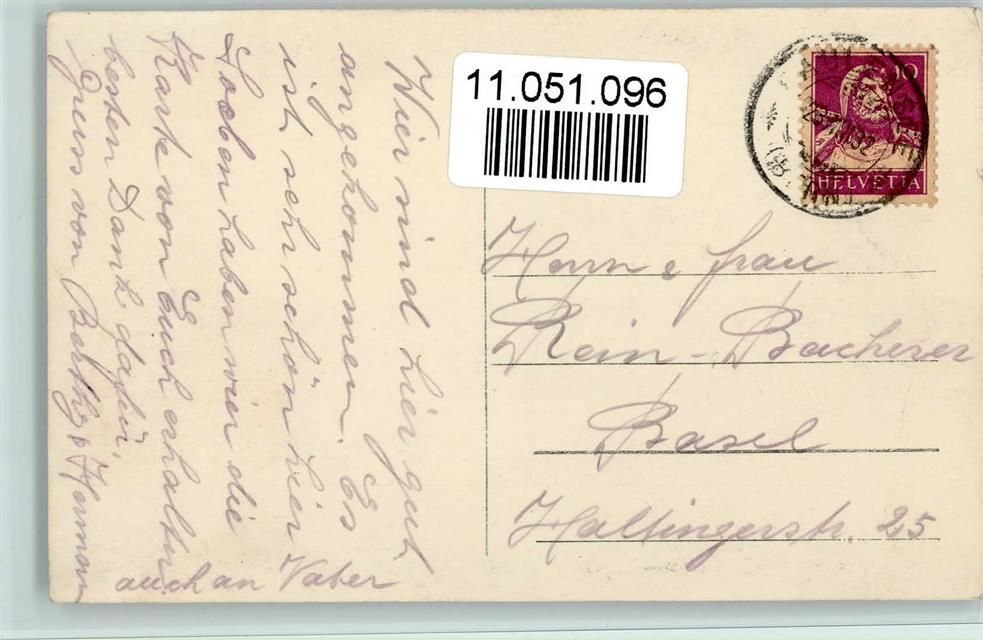 Wier sind hier gut
angekommen. Es
ist sehr schön hier
Soeben haben wier die
Karte von Euch erhalten
besten Dank dafür.
Gruss von Berthy & Herman
auch an Vater
11.051.096
10
HELVETIA
Herrn & Frau
Rein-Bacherer
Basel
Haltingerstr. 25